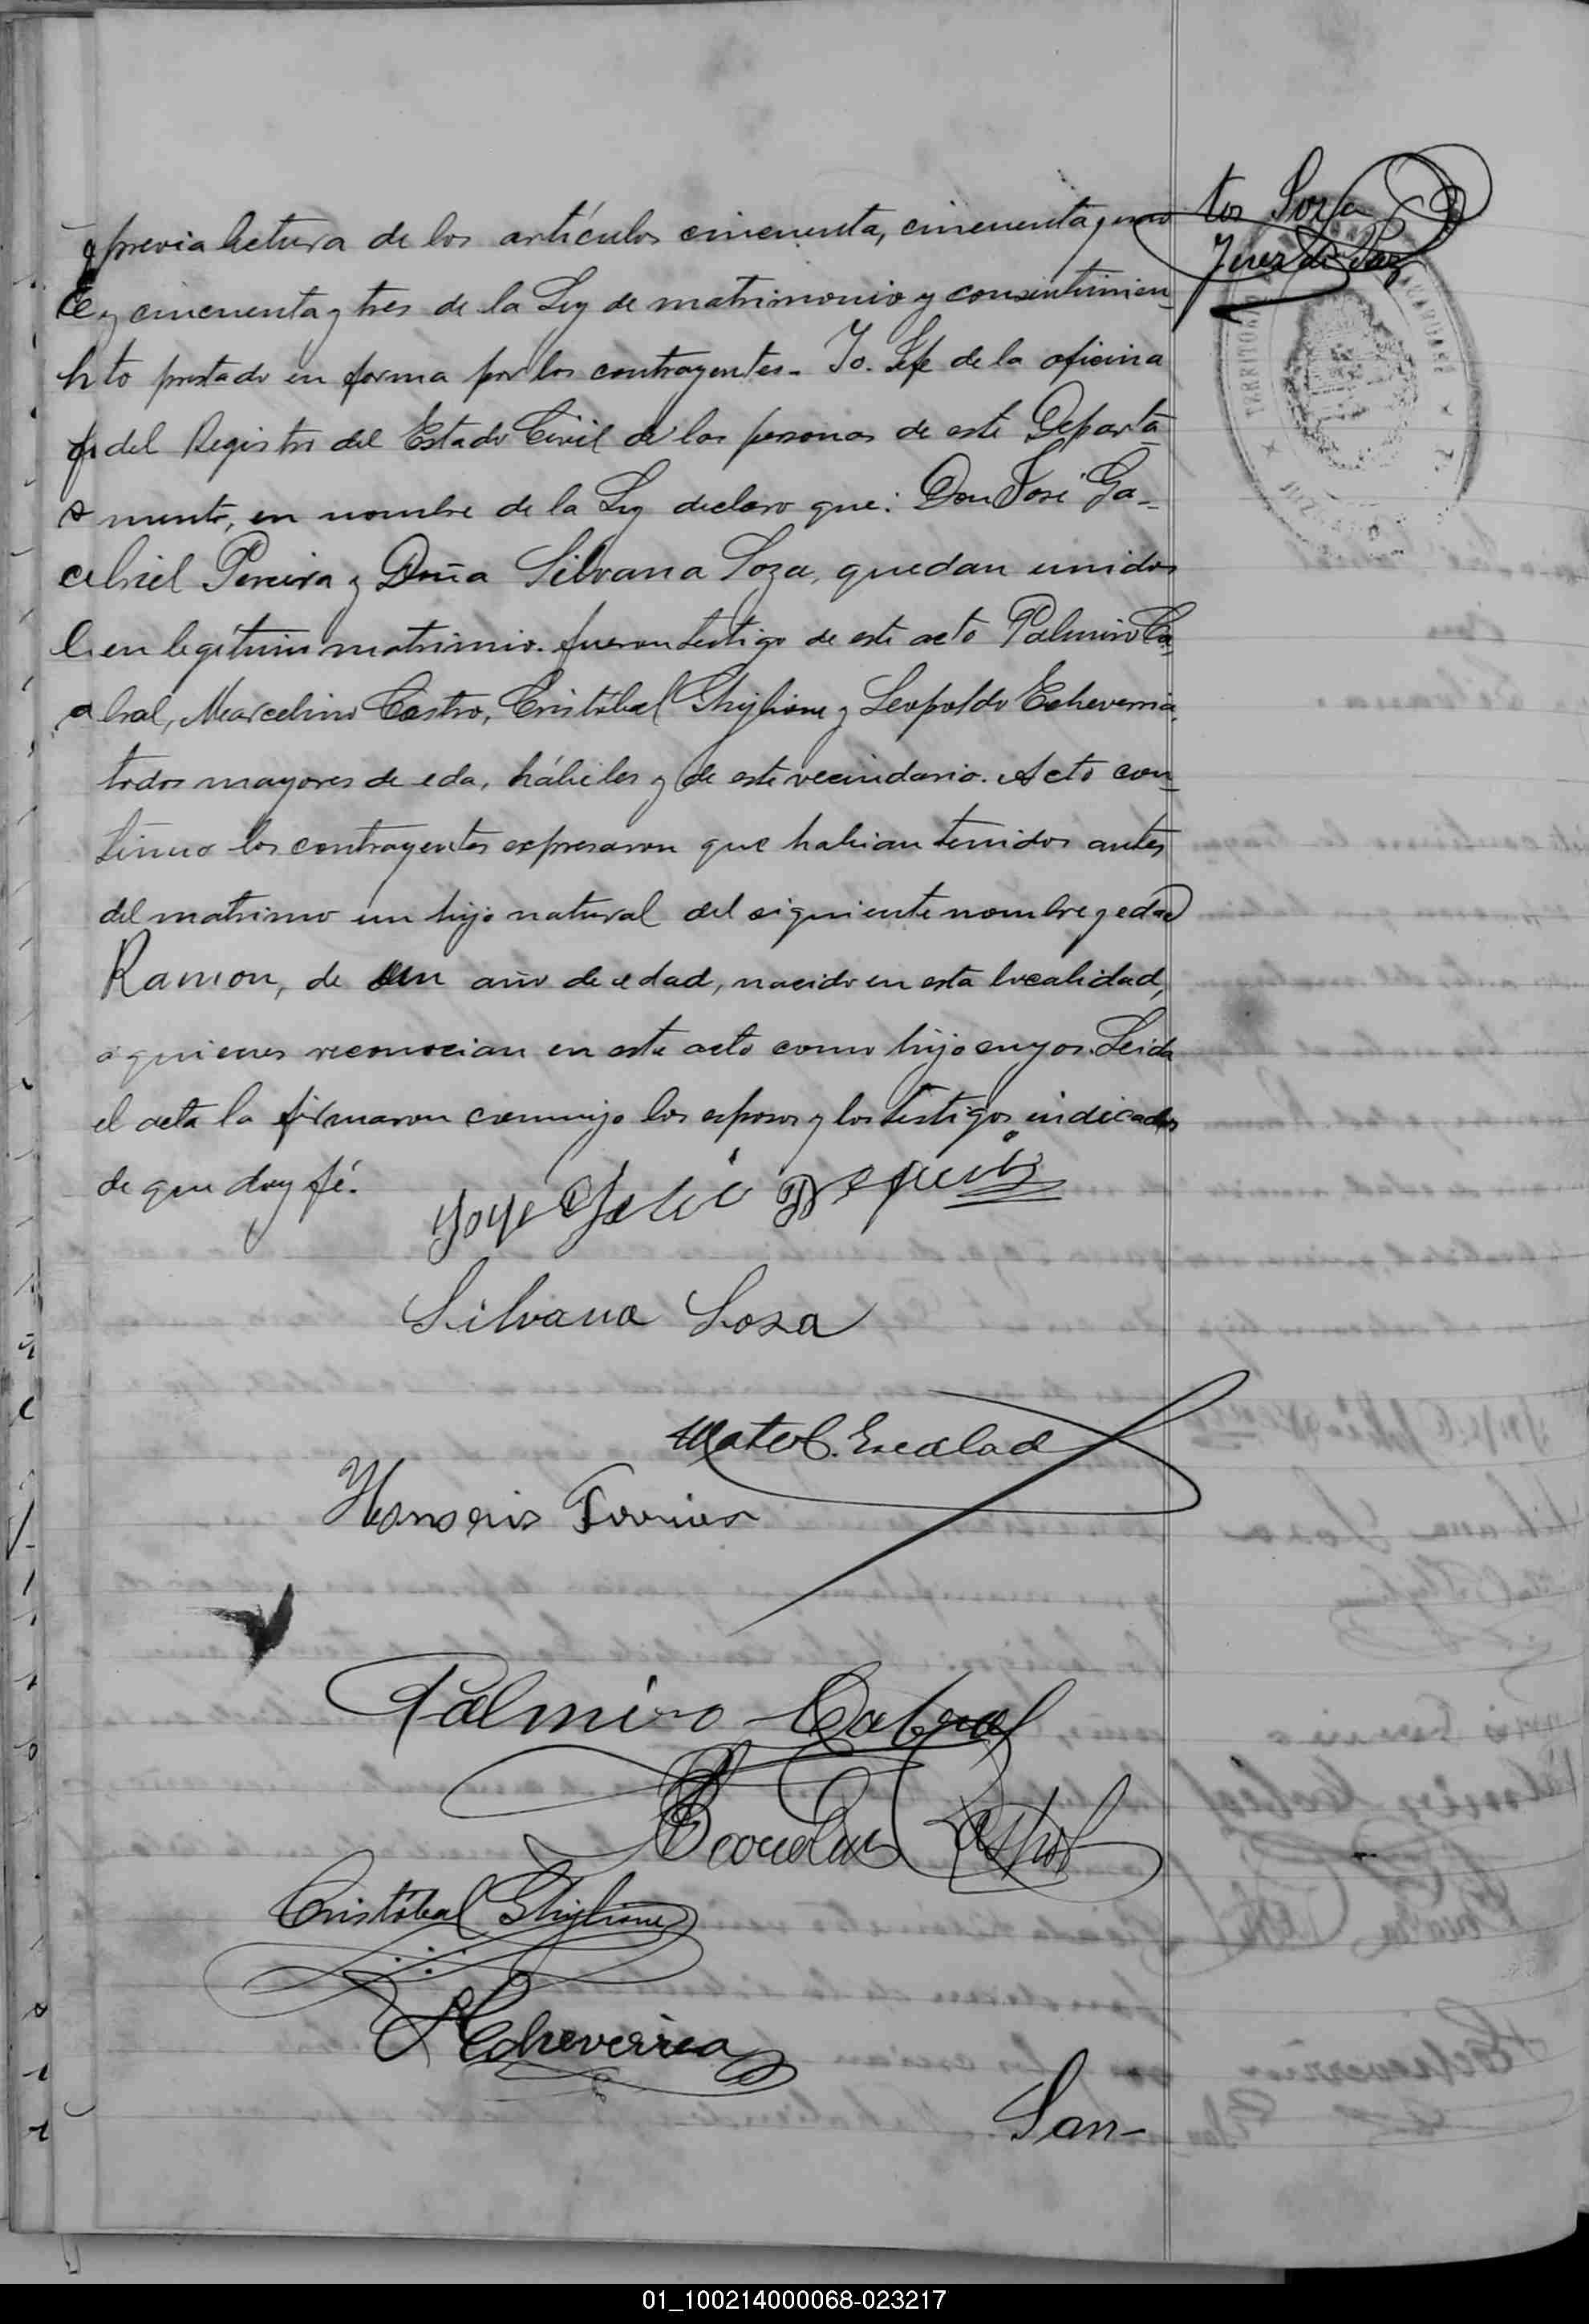 previa lectura de los artículos cincuenta, cincuenta y uno
y cincuenta y tres de la Ley de matrimonio y consentimien-
to prestado en forma por los contrayentes. Yo. Jefe de la oficina
del Registro del Estado Civil de las personas de este Departa-
mento, en nombre de la Ley declaro que: Don José Ga-
briel Pereira y Doña Silvana Soza, quedan unidos
en legitimo matrimonio. fueron testigo de este acto Palmiro Ca-
bral, Marcelino Castro, Cristóbal Ghiglione y Leopoldo Echeverria,
todos mayores de eda, hábiles y de este vecindario. Acto con-
tinuo los contrayentes expresaron que habian tenidos antes
del matrimo un hijo natural del siguiente nombre y edad
Ramon, de un año de edad, nacido en esta localidad,
a quienes reconocian en este acto como hijo suyos. Leida
el acta la firmaron conmigo los esposos y los testigos indicados
de que doy fé.
Silvana Sosa
Escalad
Palmiro Cabral
Castro
Cristóbal Ghiglione
Echeverria
San-
tos Sosa
Juez de Paz
TERRITORIO
01_100214000068-023217